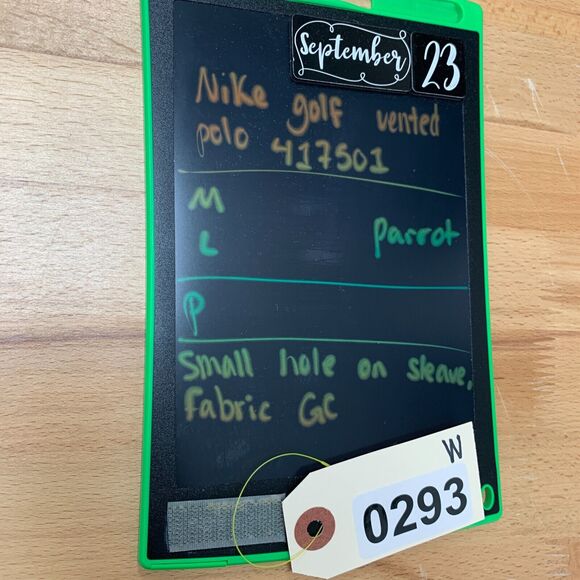 September 23
Nike golf vented
polo 417501
M
L parrot
P
Small hole on sleave,
fabric GC
W
0293